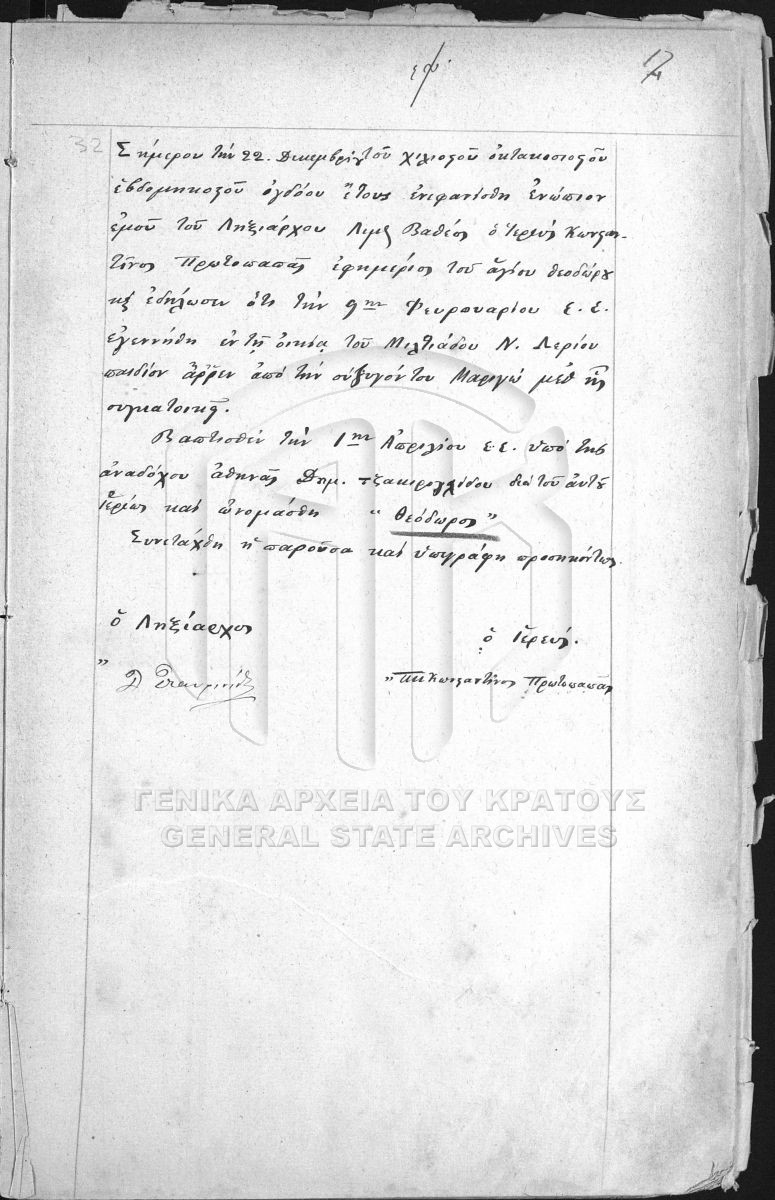 17
32
Σήμερον τὴν 22. Δεκεμβρίου τοῦ χιλιοστοῦ ὀκτακοσιοστοῦ
ἑβδομηκοστοῦ ὀγδόου ἔτους ἐνεφανίσθη ἐνώπιον
ἐμοῦ τοῦ Ληξιάρχου Λιμ. Βαθέος ὁ Ἱερεὺς Κωνσταν-
τῖνος Πρωτοπαπᾶς ἐφημέριος τοῦ ἁγίου Θεοδώρου
καὶ ἐδήλωσεν ὅτι τὴν 9ην Φευρουαρίου ἐ. ἐ.
ἐγεννήθη ἐν τῇ οἰκίᾳ τοῦ Μιλτιάδου Ν. Λερίου
παιδίον ἄῤῥεν ἀπὸ τὴν σύζυγόν του Μαριγώ μεθ' ἧς
συγκατοικεῖ.
Βαπτισθὲν τὴν 1ην Ἀπριλίου ἐ.ἐ. ὑπὸ τῆς
ἀναδόχου Ἀθηνᾶς Δημ. διὰ τοῦ αὐτοῦ
Ἱερέως καὶ ὠνομάσθη "Θεόδωρος"
Συνετάχθη ἡ παροῦσα καὶ ὑπεγράφη προσηκόντως.
ὁ Ληξίαρχος
ὁ Ἱερεύς.
" Δ
" Κωνσταντῖνος Πρωτοπαπᾶς
ΓΕΝΙΚΑ ΑΡΧΕΙΑ ΤΟΥ ΚΡΑΤΟΥΣ
GENERAL STATE ARCHIVES